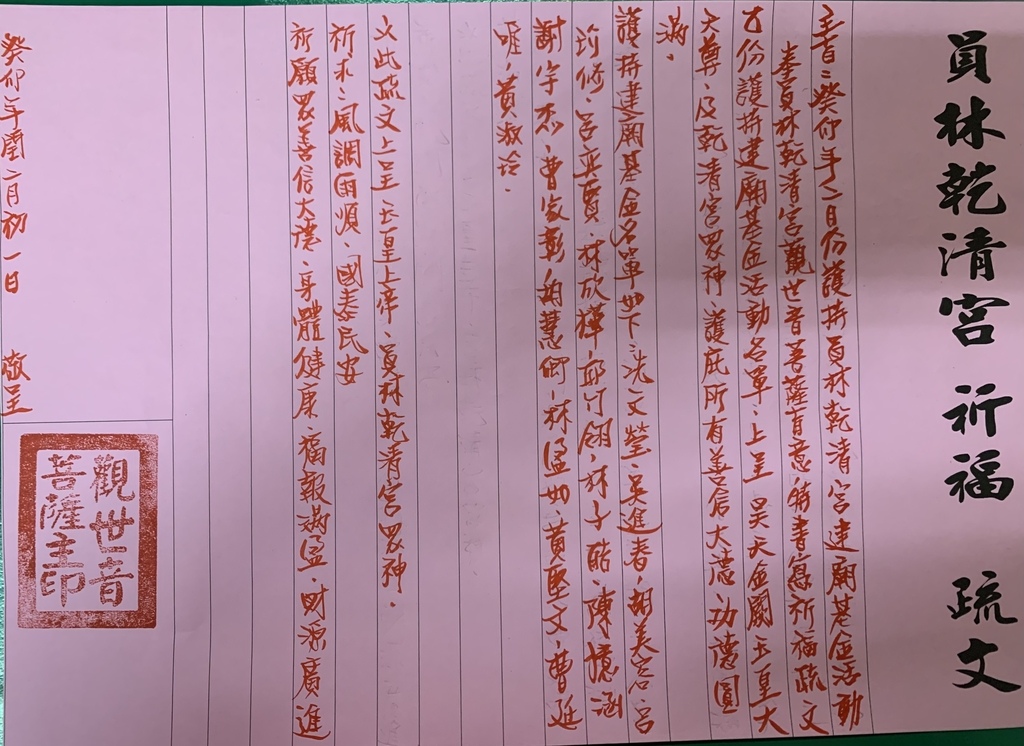 員林乾清宮 祈福 疏文
主旨：癸卯年2月份護持員林乾清宮建廟基金活動
奉員林乾清宮觀世音菩薩旨意，特書寫祈福疏文
乙份護持建廟基金活動名單，上呈 昊天金闕玉皇大
天尊、及乾清宮眾神、護庇所有善信大德、功德圓
滿。
護持建廟基金名單如下：冼文瑩、吳進春、胡美容、呂
珍修、呂奕賣、林欣樺、邱竹翎、林子皓、陳憶涵
謝宇杰、曹家彰、胡慧俐、林溫如、黃堅文、曹延
唯、黃淑玲。
以此疏文上呈玉皇上帝、員林乾清宮眾神。
祈求：風調雨順、國泰民安
祈願眾善信大德、身體健康、福報滿盈、財源廣進
癸卯年閏二月初一日 敬呈
觀世音
菩薩主印